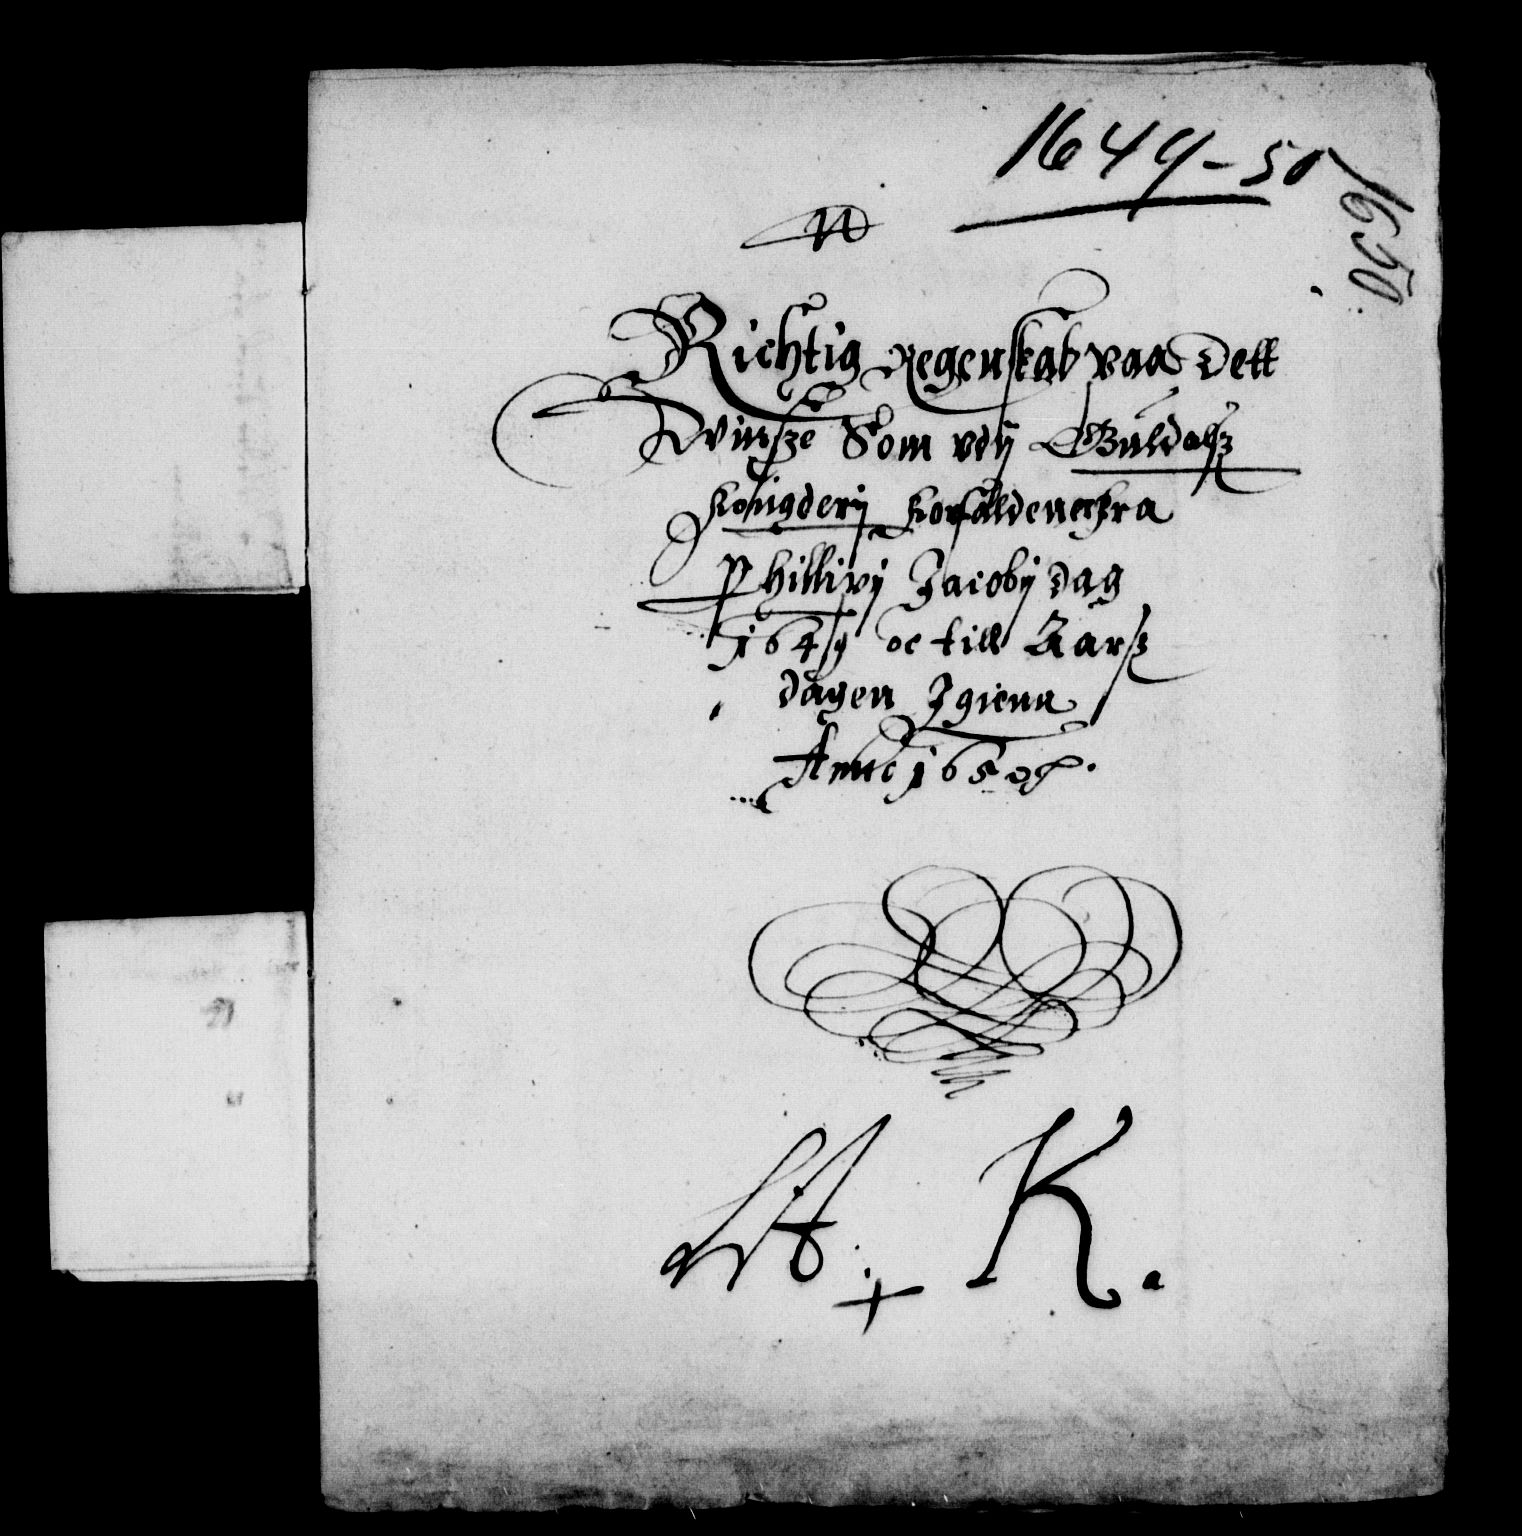 1649-50
1650.
N
Richtig Regenskab paa Dett
Quinsze Som vdj Guldalsz
Fougderij Forfaldenn er fra
Phillipj Jacobij dag
1649 oc till Aarsz
dagen Igienn
Anno 1650
K.